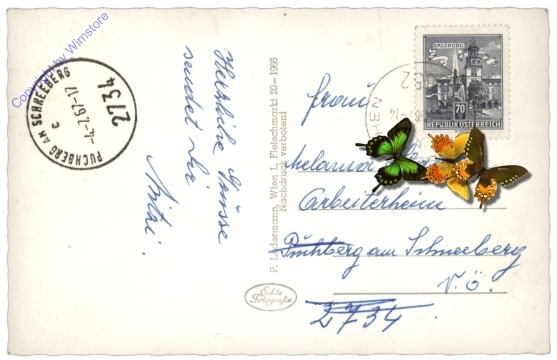 Copyright by Wimstore
PUCHBERG AM SCHNEEBERG
c
-4.7.67-17
2734
Herzliche Grüsse
sendet Dir
P. Ledermann, Wien I., Fleischmarkt 20-1966
Nachdruck verboten!
Echte
Fotografie
SALZBURG
70
REPUBLIK ÖSTERREICH
Frau
Arbeiterheim
Puchberg am Schneeberg
N.Ö.
2734